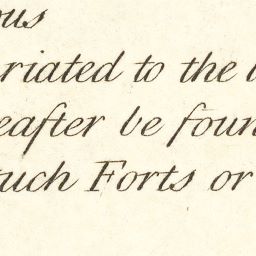 ous
riated to the
eafter be foun
such Forts or